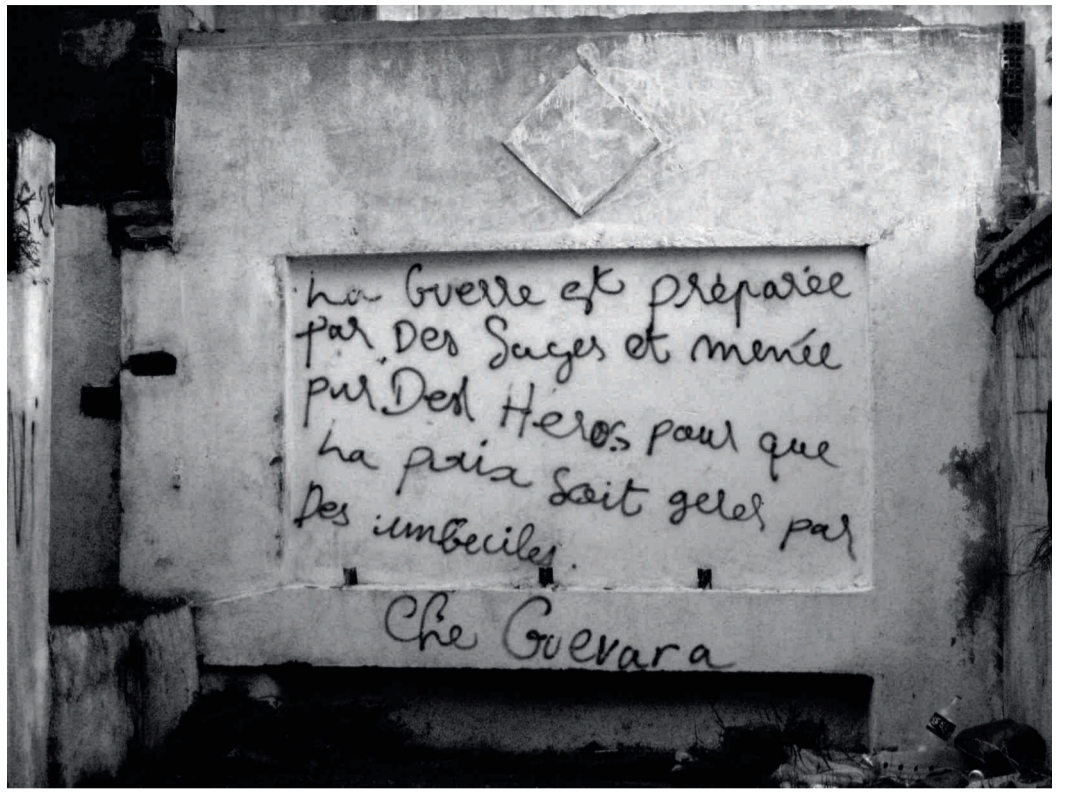 La Guerre est préparée
par Des Sages et menée
par Des Héros pour que
La paix Soit geres par
Des imbeciles.
Che Guevara